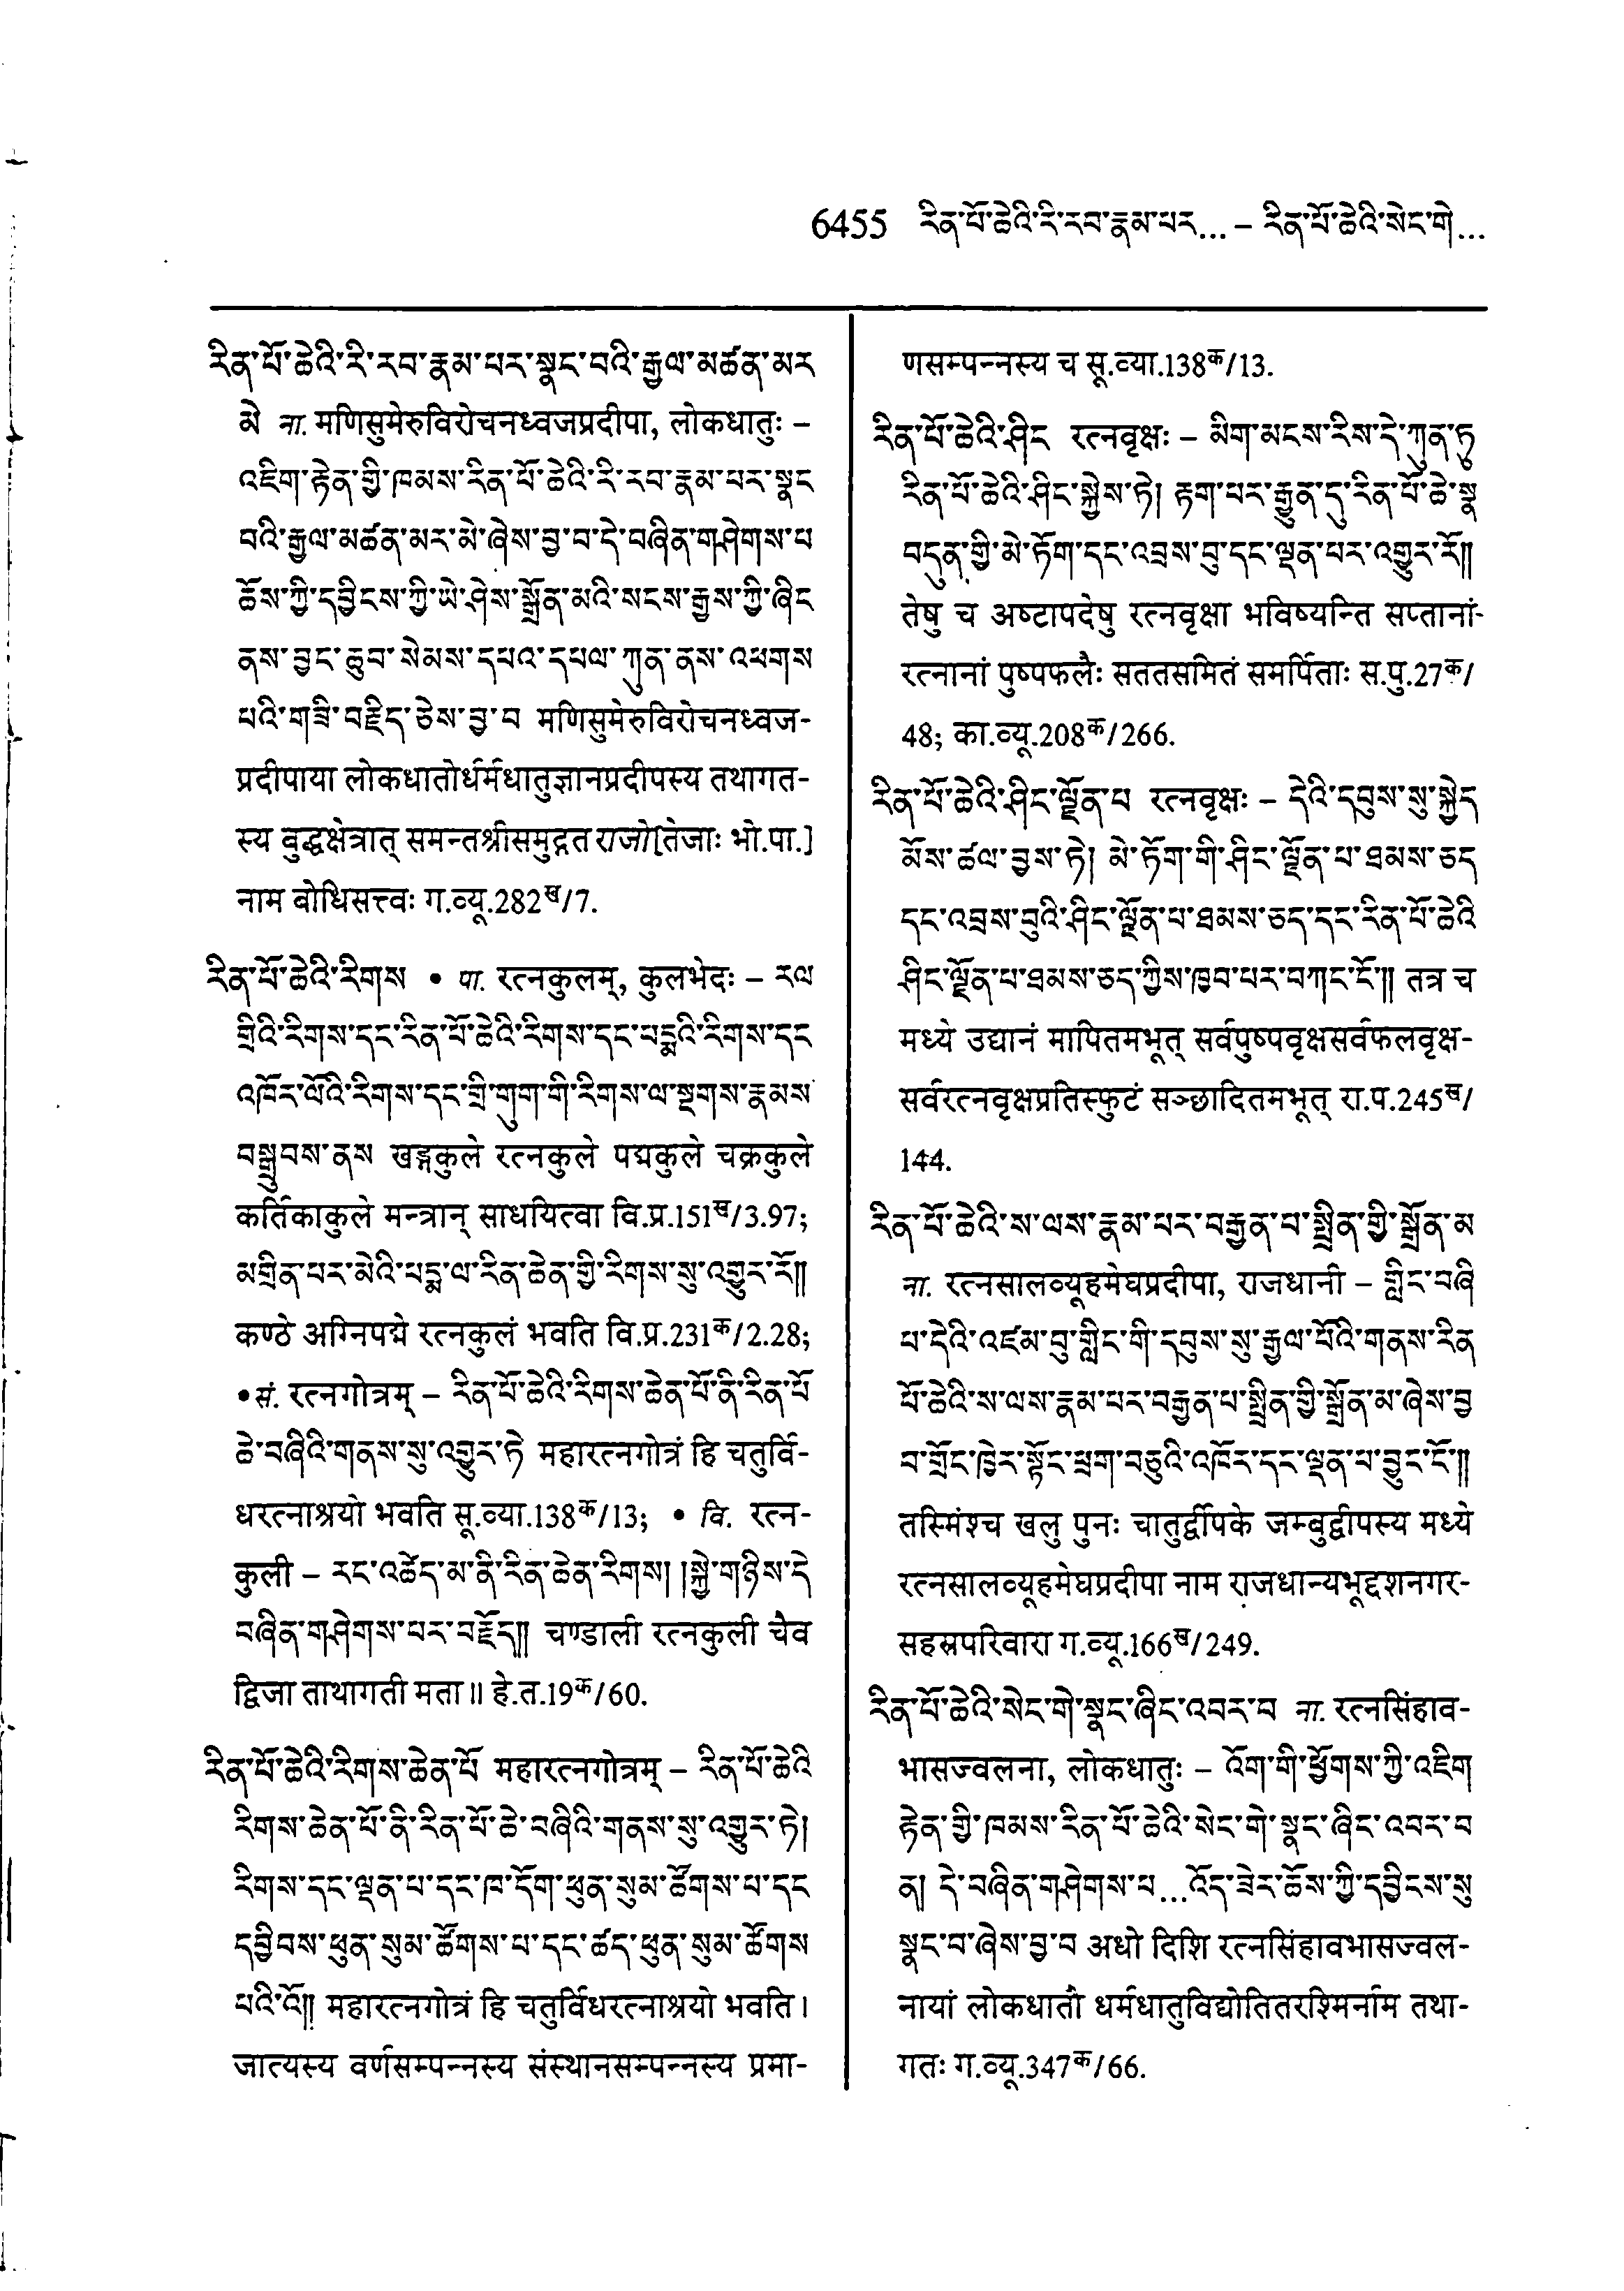 6455 རིན་པོ་ཆེའི་རི་རབ་རྣམ་པར... – རིན་པོ་ཆེའི་སེང་གེ...
རིན་པོ་ཆེའི་རི་རབ་རྣམ་པར་སྣང་བའི་རྒྱལ་མཚན་མར
མེ ना. मणिसुमेरुविरोचनध्वजप्रदीपा, लोकधातुः –
འཇིག་རྟེན་གྱི་ཁམས་རིན་པོ་ཆེའི་རི་རབ་རྣམ་པར་སྣང
བའི་རྒྱལ་མཚན་མར་མེ་ཞེས་བྱ་བ་དེ་བཞིན་གཤེགས་པ
ཆོས་ཀྱི་དབྱིངས་ཀྱི་ཡེ་ཤེས་སྒྲོན་མའི་སངས་རྒྱས་ཀྱི་ཞིང
ནས་བྱང་ཆུབ་སེམས་དཔའ་དཔལ་ཀུན་ནས་འཕགས
པའི་གཟི་བརྗིད་ཅེས་བྱ་བ मणिसुमेरुविरोचनध्वज-
प्रदीपाया लोकधातोर्धर्मधातुज्ञानप्रदीपस्य तथागत-
स्य बुद्धक्षेत्रात् समन्तश्रीसमुद्गत राजो[तेजाः भो.पा.]
नाम बोधिसत्त्वः ग.व्यू.282ख/7.
རིན་པོ་ཆེའི་རིགས • पा. रत्नकुलम्, कुलभेदः – རལ
གྲིའི་རིགས་དང་རིན་པོ་ཆེའི་རིགས་དང་པདྨའི་རིགས་དང
འཁོར་ལོའི་རིགས་དང་གྲི་གུག་གི་རིགས་ལ་སྔགས་རྣམས
བསྒྲུབས་ནས खड्गकुले रत्नकुले पद्मकुले चक्रकुले
कर्तिकाकुले मन्त्रान् साधयित्वा वि.प्र.151ख/3.97;
མགྲིན་པར་མེའི་པདྨ་ལ་རིན་ཆེན་གྱི་རིགས་སུ་འགྱུར་རོ༎
कण्ठे अग्निपद्मे रत्नकुलं भवति वि.प्र.231क/2.28;
• सं. रत्नगोत्रम् – རིན་པོ་ཆེའི་རིགས་ཆེན་པོ་ནི་རིན་པོ
ཆེ་བཞིའི་གནས་སུ་འགྱུར་ཏེ महारत्नगोत्रं हि चतुर्वि-
धरत्नाश्रयो भवति सू.व्या.138क/13; • वि. रत्न-
कुली – རང་འཚེད་མ་ནི་རིན་ཆེན་རིགས། །སྐྱེ་གཉིས་དེ
བཞིན་གཤེགས་པར་བརྗོད༎ चण्डाली रत्नकुली चैव
द्विजा ताथागती मता॥ हे.त.19क/60.
རིན་པོ་ཆེའི་རིགས་ཆེན་པོ महारत्नगोत्रम् – རིན་པོ་ཆེའི
རིགས་ཆེན་པོ་ནི་རིན་པོ་ཆེ་བཞིའི་གནས་སུ་འགྱུར་ཏེ།
རིགས་དང་ལྡན་པ་དང་ཁ་དོག་ཕུན་སུམ་ཚོགས་པ་དང
དབྱིབས་ཕུན་སུམ་ཚོགས་པ་དང་ཚད་ཕུན་སུམ་ཚོགས
པའི་འོ༎ महारत्नगोत्रं हि चतुर्विधरत्नाश्रयो भवति।
जात्यस्य वर्णसम्पन्नस्य संस्थानसम्पन्नस्य प्रमा-
णसम्पन्नस्य च सू.व्या.138क/13.
རིན་པོ་ཆེའི་ཤིང रत्नवृक्षः – མིག་མངས་རིས་དེ་ཀུན་ཏུ
རིན་པོ་ཆེའི་ཤིང་སྐྱེས་ཏེ། རྟག་པར་རྒྱུན་དུ་རིན་པོ་ཆེ་སྣ
བདུན་གྱི་མེ་ཏོག་དང་འབྲས་བུ་དང་ལྡན་པར་འགྱུར་རོ༎
तेषु च अष्टापदेषु रत्नवृक्षा भविष्यन्ति सप्तानां-
रत्नानां पुष्पफलैः सततसमितं समर्पिताः स.पु.27क/
48; का.व्यू.208क/266.
རིན་པོ་ཆེའི་ཤིང་ལྗོན་པ रत्नवृक्षः – དེའི་དབུས་སུ་སྐྱེད
མོས་ཚལ་བྱས་ཏེ། མེ་ཏོག་གི་ཤིང་ལྗོན་པ་ཐམས་ཅད
དང་འབྲས་བུའི་ཤིང་ལྗོན་པ་ཐམས་ཅད་དང་རིན་པོ་ཆེའི
ཤིང་ལྗོན་པ་ཐམས་ཅད་ཀྱིས་ཁྱབ་པར་བཀང་ངོ་༎ तत्र च
मध्ये उद्यानं मापितमभूत् सर्वपुष्पवृक्षसर्वफलवृक्ष-
सर्वरत्नवृक्षप्रतिस्फुटं सञ्छादितमभूत् रा.प.245ख/
144.
རིན་པོ་ཆེའི་ས་ལས་རྣམ་པར་བརྒྱན་པ་སྤྲིན་གྱི་སྒྲོན་མ
ना. रत्नसालव्यूहमेघप्रदीपा, राजधानी – གླིང་བཞི
པ་དེའི་འཛམ་བུ་གླིང་གི་དབུས་སུ་རྒྱལ་པོའི་གནས་རིན
པོ་ཆེའི་ས་ལས་རྣམ་པར་བརྒྱན་པ་སྤྲིན་གྱི་སྒྲོན་མ་ཞེས་བྱ
བ་གྲོང་ཁྱེར་སྟོང་ཕྲག་བཅུའི་འཁོར་དང་ལྡན་པ་བྱུང་ངོ་༎
तस्मिंश्च खलु पुनः चातुर्द्वीपके जम्बुद्वीपस्य मध्ये
रत्नसालव्यूहमेघप्रदीपा नाम राजधान्यभूद्दशनगर-
सहस्रपरिवारा ग.व्यू.166ख/249.
རིན་པོ་ཆེའི་སེང་གེ་སྣང་ཞིང་འབར་བ ना. रत्नसिंहाव-
भासज्वलना, लोकधातुः – འོག་གི་ཕྱོགས་ཀྱི་འཇིག
རྟེན་གྱི་ཁམས་རིན་པོ་ཆེའི་སེང་གེ་སྣང་ཞིང་འབར་བ
ན། དེ་བཞིན་གཤེགས་པ...འོད་ཟེར་ཆོས་ཀྱི་དབྱིངས་སུ
སྣང་བ་ཞེས་བྱ་བ अधो दिशि रत्नसिंहावभासज्वल-
नायां लोकधातौ धर्मधातुविद्योतितरश्मिर्नाम तथा-
गतः ग.व्यू.347क/66.